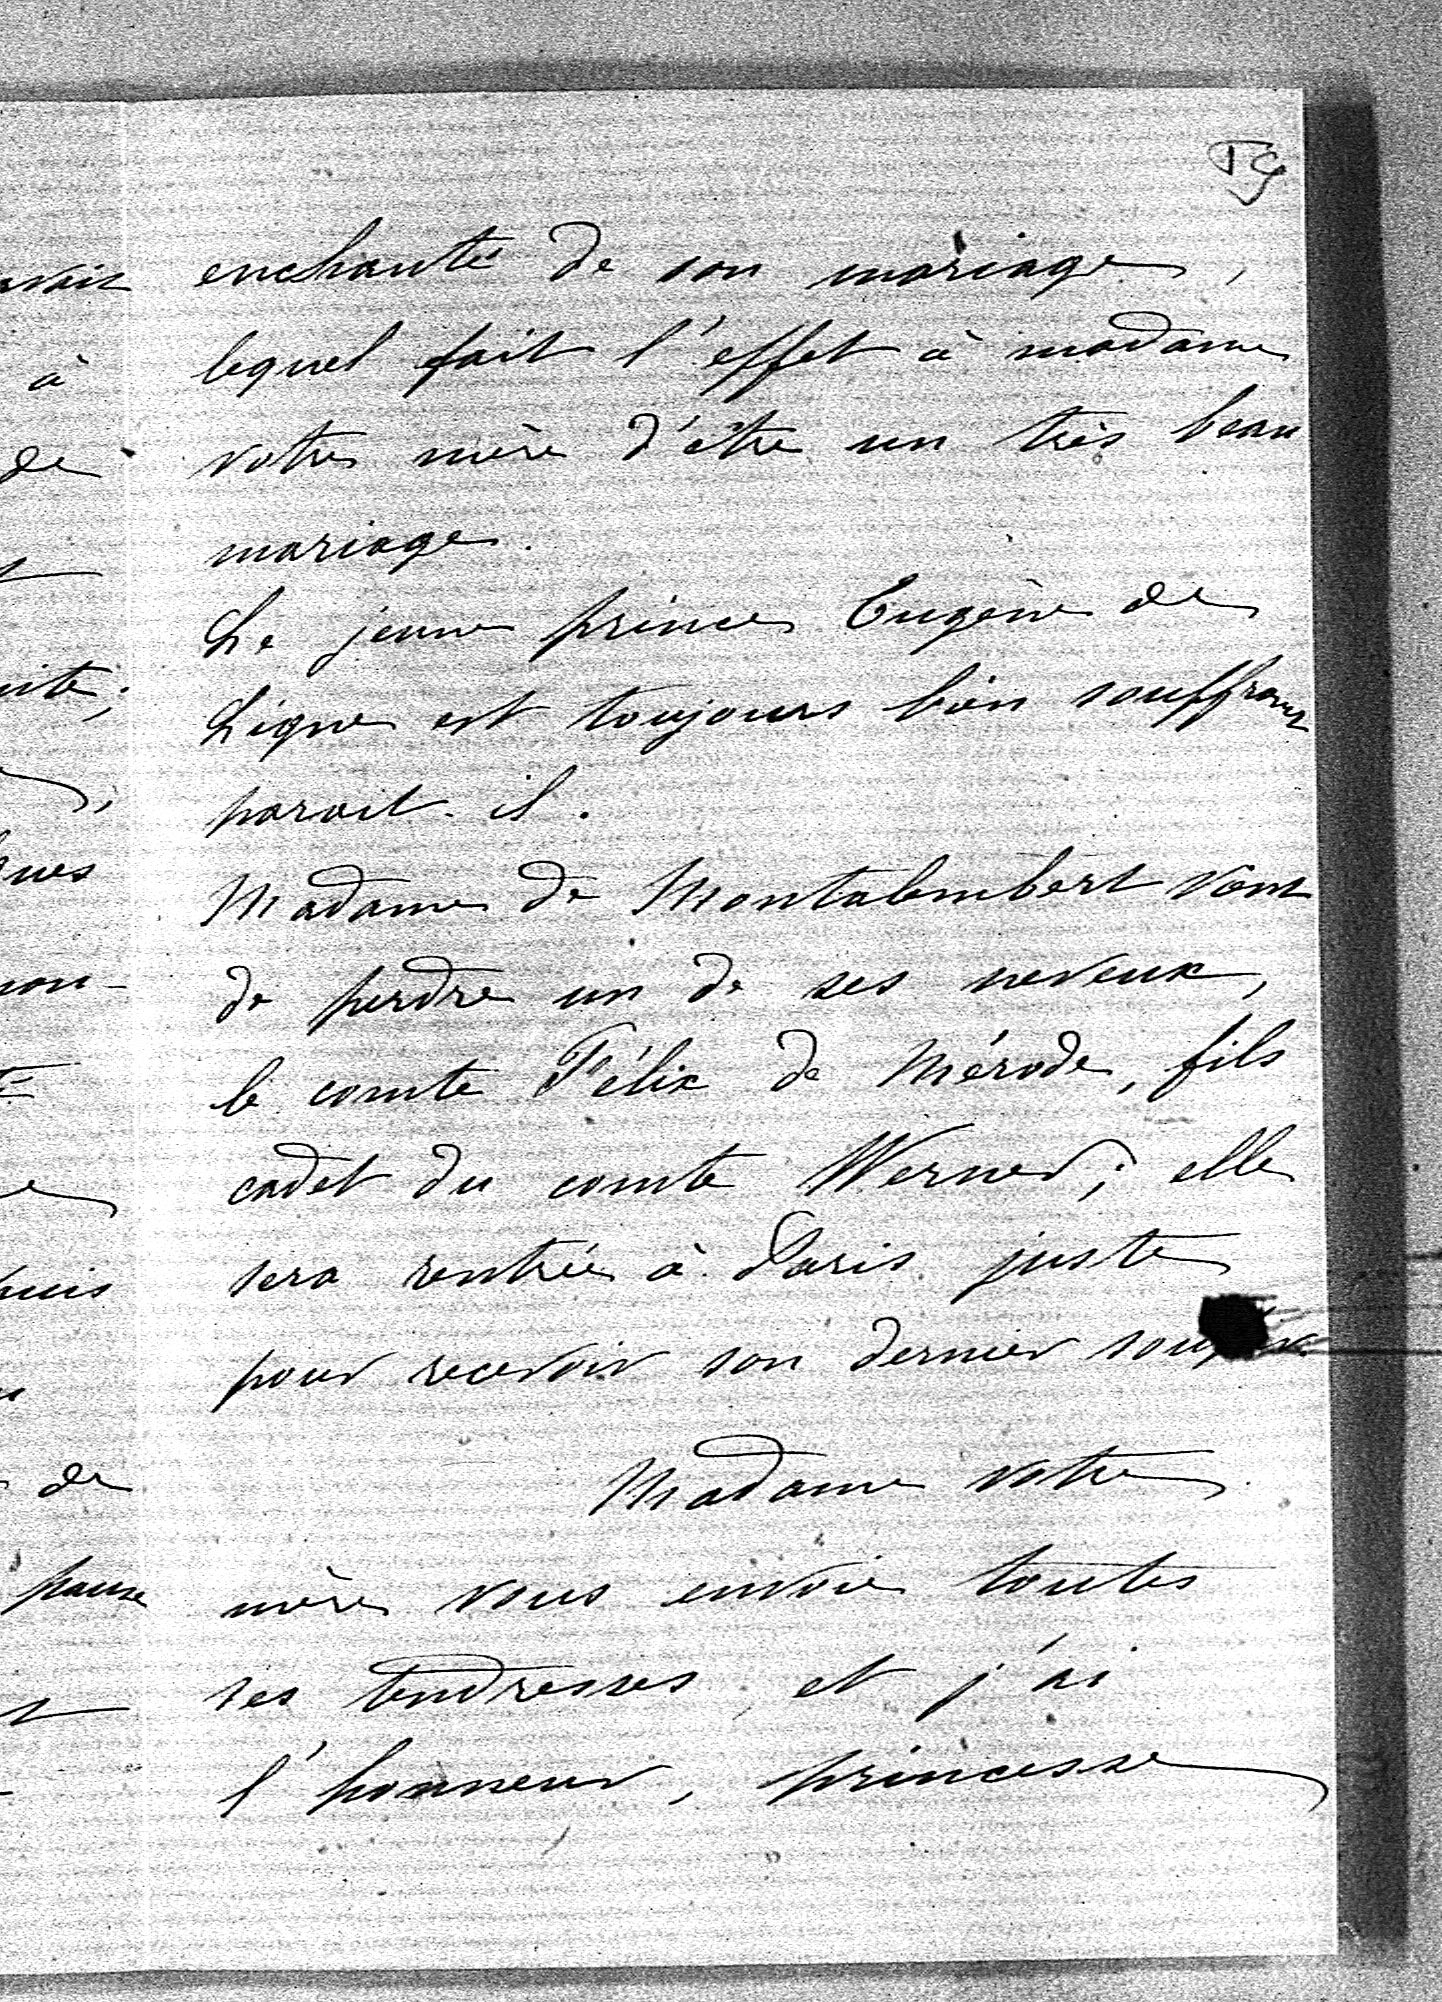 59
enchanté de son mariage,
lequel fait l'effet à madame
votre mère d'être un très beau
mariage.
Le jeune prince Eugène de
Ligne est toujours bien souffrant
parait-il.
Madame de Montalembert vient
de perdre un de ses neveux,
le comte Félix de Mérode, fils
cadet du comte Werner; elle
sera rentrée à Paris juste
pour recevoir son dernier soupir.
Madame votre
mère vous envoie toutes
ses tendresses, et j'ai
l'honneur, princesse,